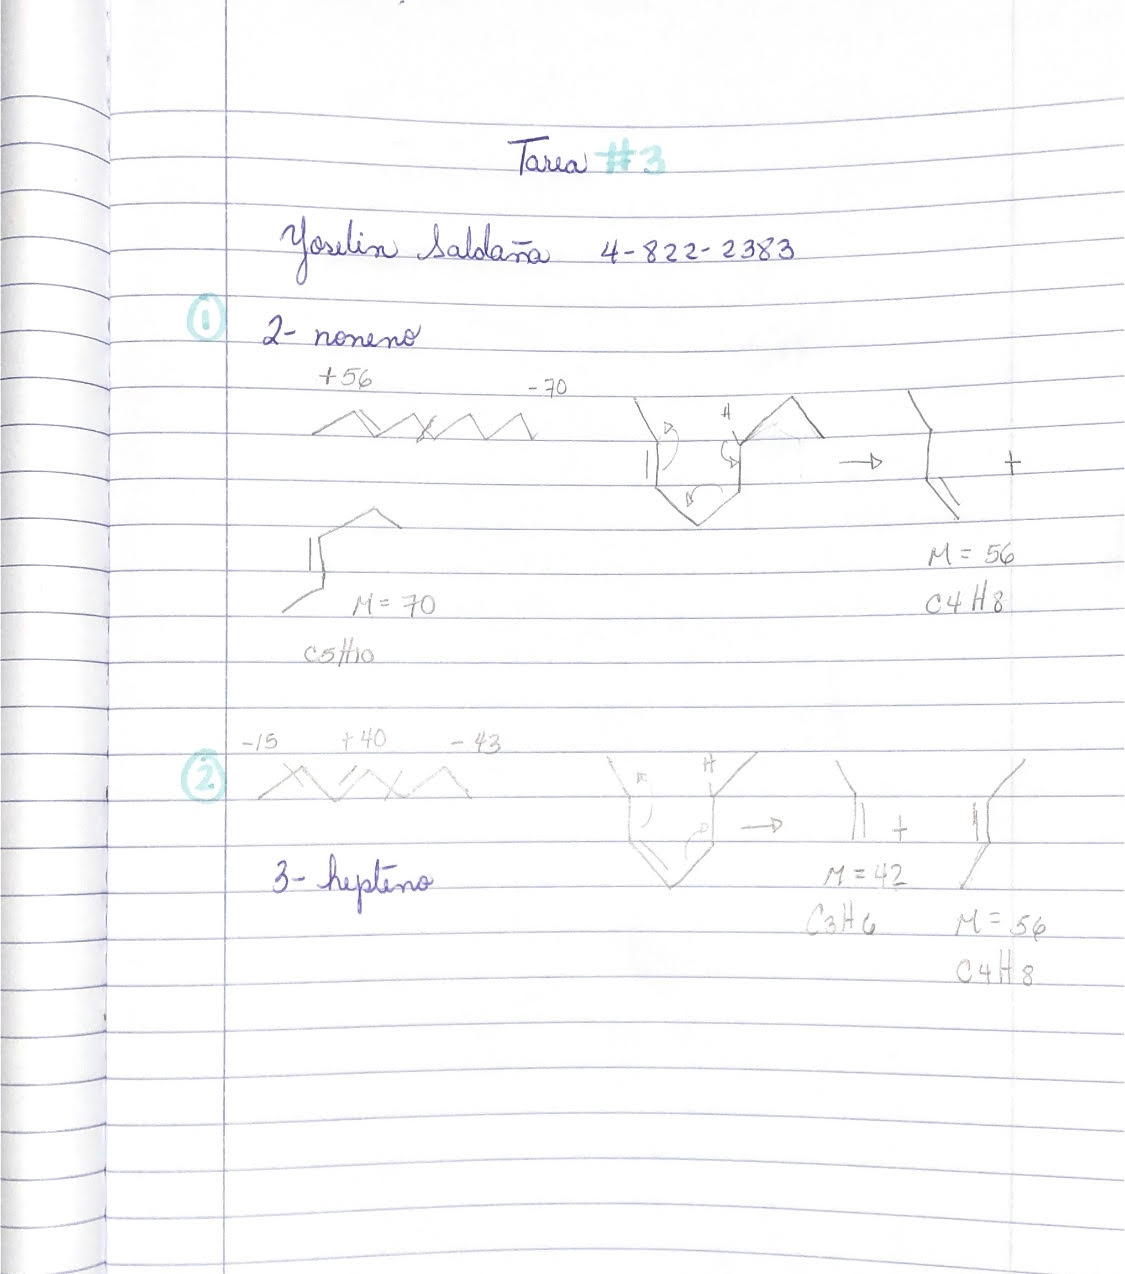 Tarea #3
Yoselin Saldaña 4-822-2383
1 2- noneno
+56 -70
H
+
M = 56
M = 70 C4H8
C5H10
-15 +40 -43
2 H
+
3- hepteno M = 42
C3H6 M = 56
C4H8